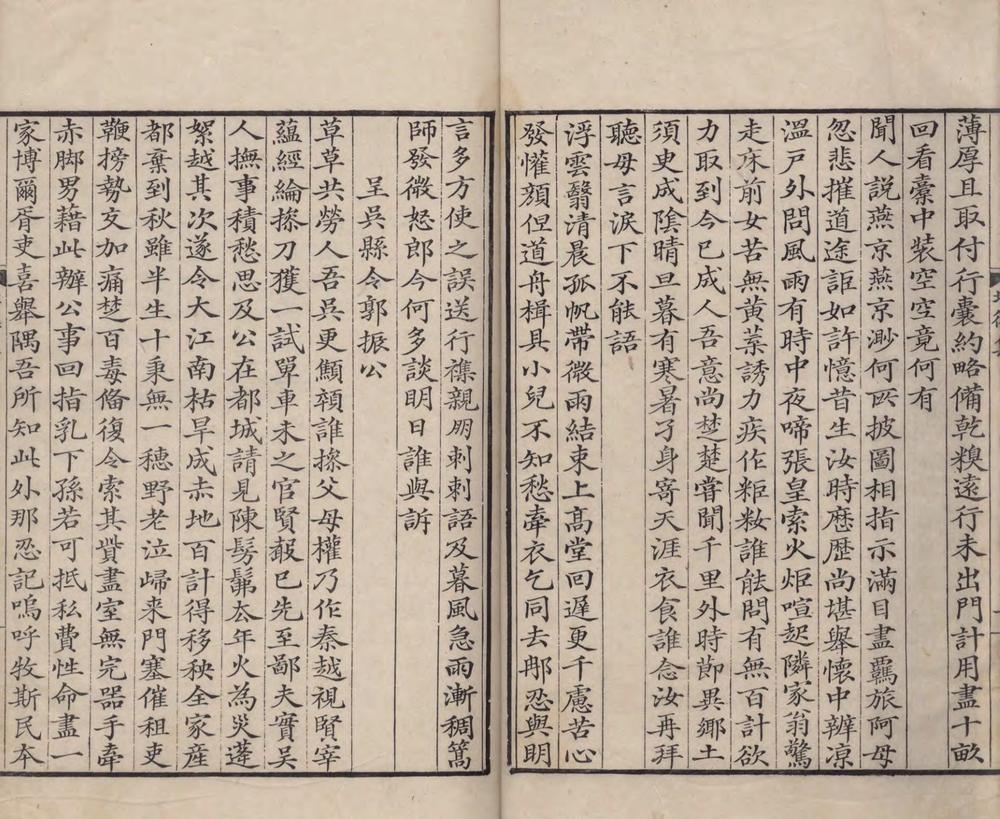 薄厚且取付行囊約略俻乾糗遠行未出門計用盡十畝
回看橐中裝空空竟何有
聞人説燕京燕京渺何所披圖相指示滿目盡羈旅阿母
忽悲摧道途詎如許憶昔生汝時歷歷尚堪舉懷中辨凉
溫戸外問風雨有時中夜啼張皇索火炬喧起隣家翁驚
走床前女苦無黄葉誘力疾作粔籹誰能問有無百計欲
力取到今已成人吾意尚楚楚嘗聞千里外時節異鄉土
須臾成陰晴旦暮有寒暑孑身寄天涯衣食誰念汝再拜
聽母言淚下不能語
浮雲翳清晨孤帆帶微雨結束上髙堂回遲更千慮苦心
發懽顔但道舟楫具小兒不知愁牽衣乞同去那忍與明
言多方使之誤送行襍親朋刺刺語及暮風急雨漸稠篙
師發微怒郎今何多談明日誰與訴
呈吳縣令郭振公
草草共勞人吾吳更顦顇誰操父母權乃作秦越視賢宰
蘊經綸操刀獲一試單車未之官賢聲已先至鄙夫實吳
人撫事積愁思及公在都城請見陳髣髴去年火為災蓬
絮越其次遂令大江南枯旱成赤地百計得移秧全家産
都棄到秋雖半生十秉無一穗野老泣歸来門塞催租吏
鞭搒勢交加痛楚百毒俻復令索其貲盡室無完器手牽
赤脚男藉此辦公事回指乳下孫若可抵私費性命盡一
家博爾胥吏喜舉隅吾所知此外那忍記嗚呼牧斯民本